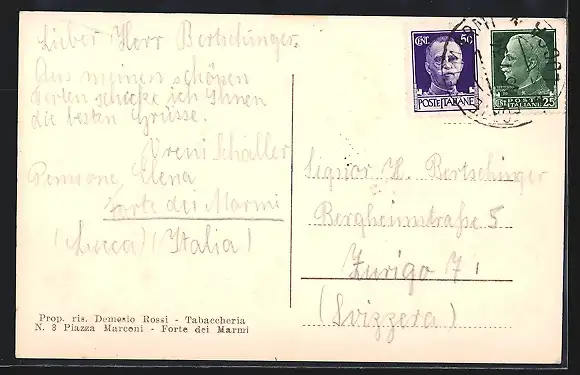 Lieber Herr Bertschinger.
Aus meinen schönen
Ferien schicke ich Ihnen
die besten Grüsse.
Vreni Schaller
Pensione Elena
Forte dei Marmi
(Lucca) (Italia)
Prop. ris. Demesio Rossi - Tabaccheria
N. 8 Piazza Marconi - Forte dei Marmi
CENT. 50
POSTE ITALIANE
POSTE
ITALIANE 25
Signor H. Bertschinger
Bergheimstraße 5
Zurigo 7
(Svizzera)